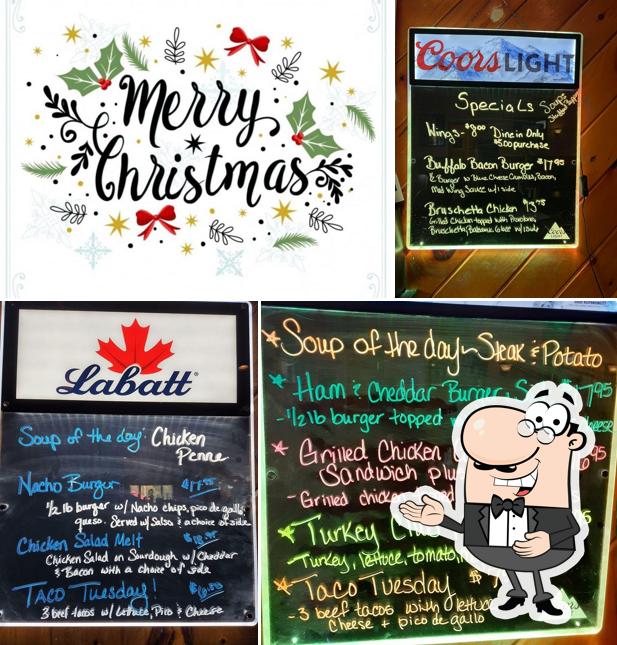 Merry
Christmas
Coors LIGHT
Specials
Soup:
Wings - Dine in Only
$5.00 purchase
Buffalo Bacon Burger $17.95
Burger w/ Blue Cheese Crumbles, Bacon,
Mild Wing Sauce w/ 1 side
Bruschetta Chicken
Grilled Chicken topped with Provolone,
Bruschetta, Balsamic Glaze w/
Labatt
Soup of the day: Chicken
Penne
Nacho Burger
1/2 lb burger w/ Nacho chips, pico de gallo,
queso. Served w/ Salsa & a choice of side
Chicken Salad Melt
Chicken Salad on Sourdough w/ Cheddar
& Bacon with a choice of side
Taco Tuesday!
3 beef tacos w/ Lettuce, Pico & Cheese
Soup of the day ~ Steak & Potato
Ham & Cheddar Burger 17.95
- 1/2 lb burger topped
Grilled Chicken
Sandwich
- Grilled chicken
Turkey
Turkey, lettuce, tomato,
Taco Tuesday $
- 3 beef tacos with lettuce
cheese + pico de gallo